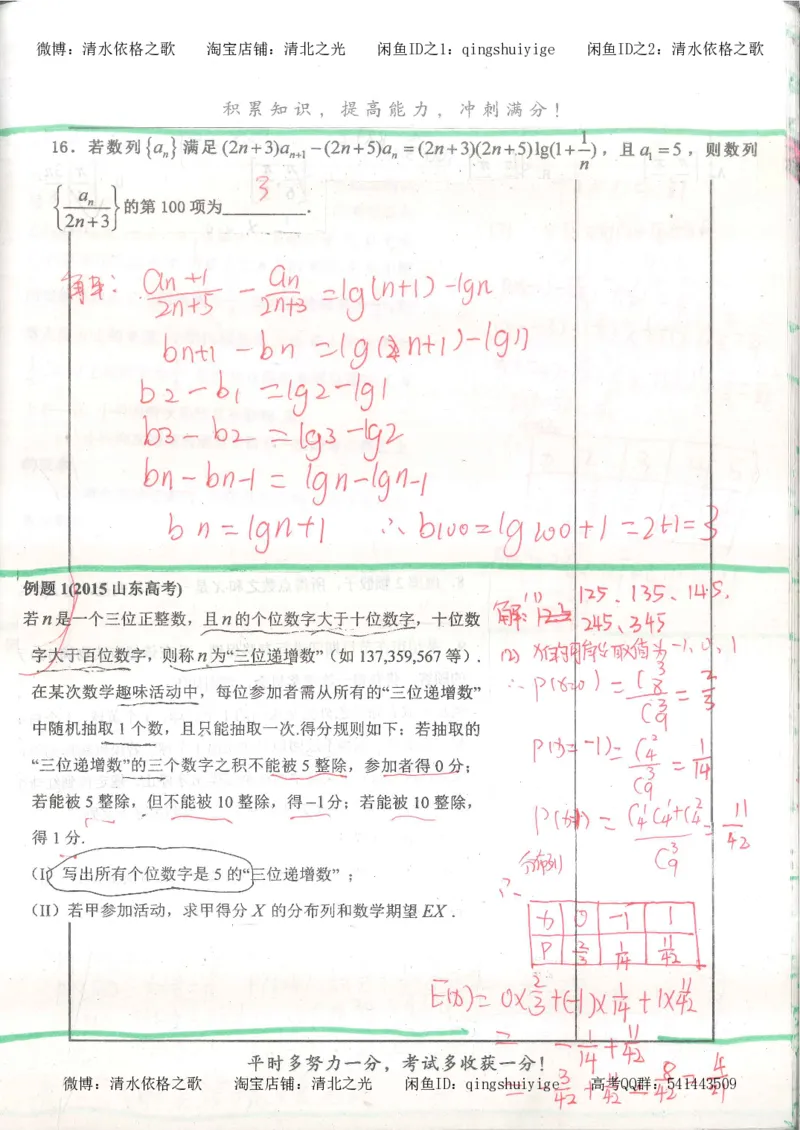 微博：清水依格之歌 淘宝店铺：清北之光 闲鱼ID之1：qingshuiyige 闲鱼ID之2：清水依格之歌
积累知识，提高能力，冲刺满分！
16．若数列{aₙ}满足(2n+3)aₙ₊₁－(2n+5)aₙ＝(2n+3)(2n+5)lg(1+1/n)，且a₁＝5，则数列
{aₙ/(2n+3)}的第100项为 3 ．
解: aₙ₊₁/(2n+5) － aₙ/(2n+3) ＝lg(n+1)－lgn
bn+1－bn＝lg(n+1)－lgn
b2－b1＝lg2－lg1
b3－b2＝lg3－lg2
bn－bn-1＝lgn－lgn-1
bn＝lgn+1 ∴b100＝lg100+1＝2+1＝3
例题1(2015山东高考)
若n是一个三位正整数，且n的个位数字大于十位数字，十位数
字大于百位数字，则称n为“三位递增数”（如137,359,567等）．
在某次数学趣味活动中，每位参加者需从所有的“三位递增数”
中随机抽取1个数，且只能抽取一次.得分规则如下：若抽取的
“三位递增数”的三个数字之积不能被5整除，参加者得0分；
若能被5整除，但不能被10整除，得－1分；若能被10整除，
得1分．
(Ⅰ) 写出所有个位数字是5的“三位递增数”；
(Ⅱ) 若甲参加活动，求甲得分X的分布列和数学期望EX．
解: (1) 125、135、145、
245、345
(2) X的可能取值为－1, 0, 1
∴P(x=0)＝C₈³/C₉³＝2/3
P(x=－1)＝C₄²/C₉³＝1/14
P(x=1)＝(C₄¹C₄¹+C₄²)/C₉³＝11/42
∴ 分布列
x 0 －1 1
P 2/3 1/14 11/42
E(x)＝0×2/3+(－1)×1/14+1×11/42
＝－1/14+11/42
＝－3/42+11/42＝8/42＝4/21
平时多努力一分，考试多收获一分！
微博：清水依格之歌 淘宝店铺：清北之光 闲鱼ID：qingshuiyige 高考QQ群：541443509